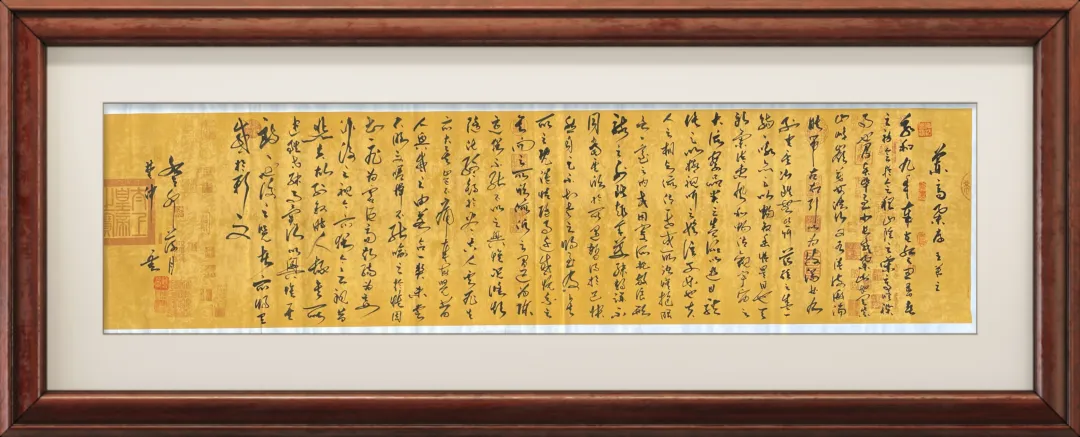 蘭亭集序 王羲之
永和九年歲在癸丑暮春
之初會于會稽山陰之蘭亭修禊
事也群賢畢至少長咸集此地有崇
山峻嶺茂林修竹又有清流激湍
映帶左右引以為流觴曲水
列坐其次雖無絲竹管弦之盛一
觴一詠亦足以暢敘幽情是日也天
朗氣清惠風和暢仰觀宇宙之
大俯察品類之盛所以遊目騁
懷足以極視聽之娛信可樂也夫
人之相與俯仰一世或取諸懷抱悟
言一室之內或因寄所託放浪形
骸之外雖趣舍萬殊靜躁不
同當其欣於所遇暫得於己快
然自足不知老之將至及其
所之既倦情隨事遷感慨係之
矣向之所欣俯仰之間已為陳
跡猶不能不以之興懷況修短
隨化終期於盡古人云死生
亦大矣豈不痛哉每覽昔
人興感之由若合一契未嘗
不臨文嗟悼不能喻之於懷固
知一死生為虛誕齊彭殤為妄
作後之視今亦猶今之視昔
悲夫故列敘時人錄其所
述雖世殊事異所以興懷其
致一也後之覽者亦將有
感於斯文
癸卯 荷月